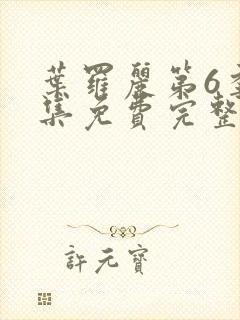 葉羅麗第6
集免費完整
許元寶